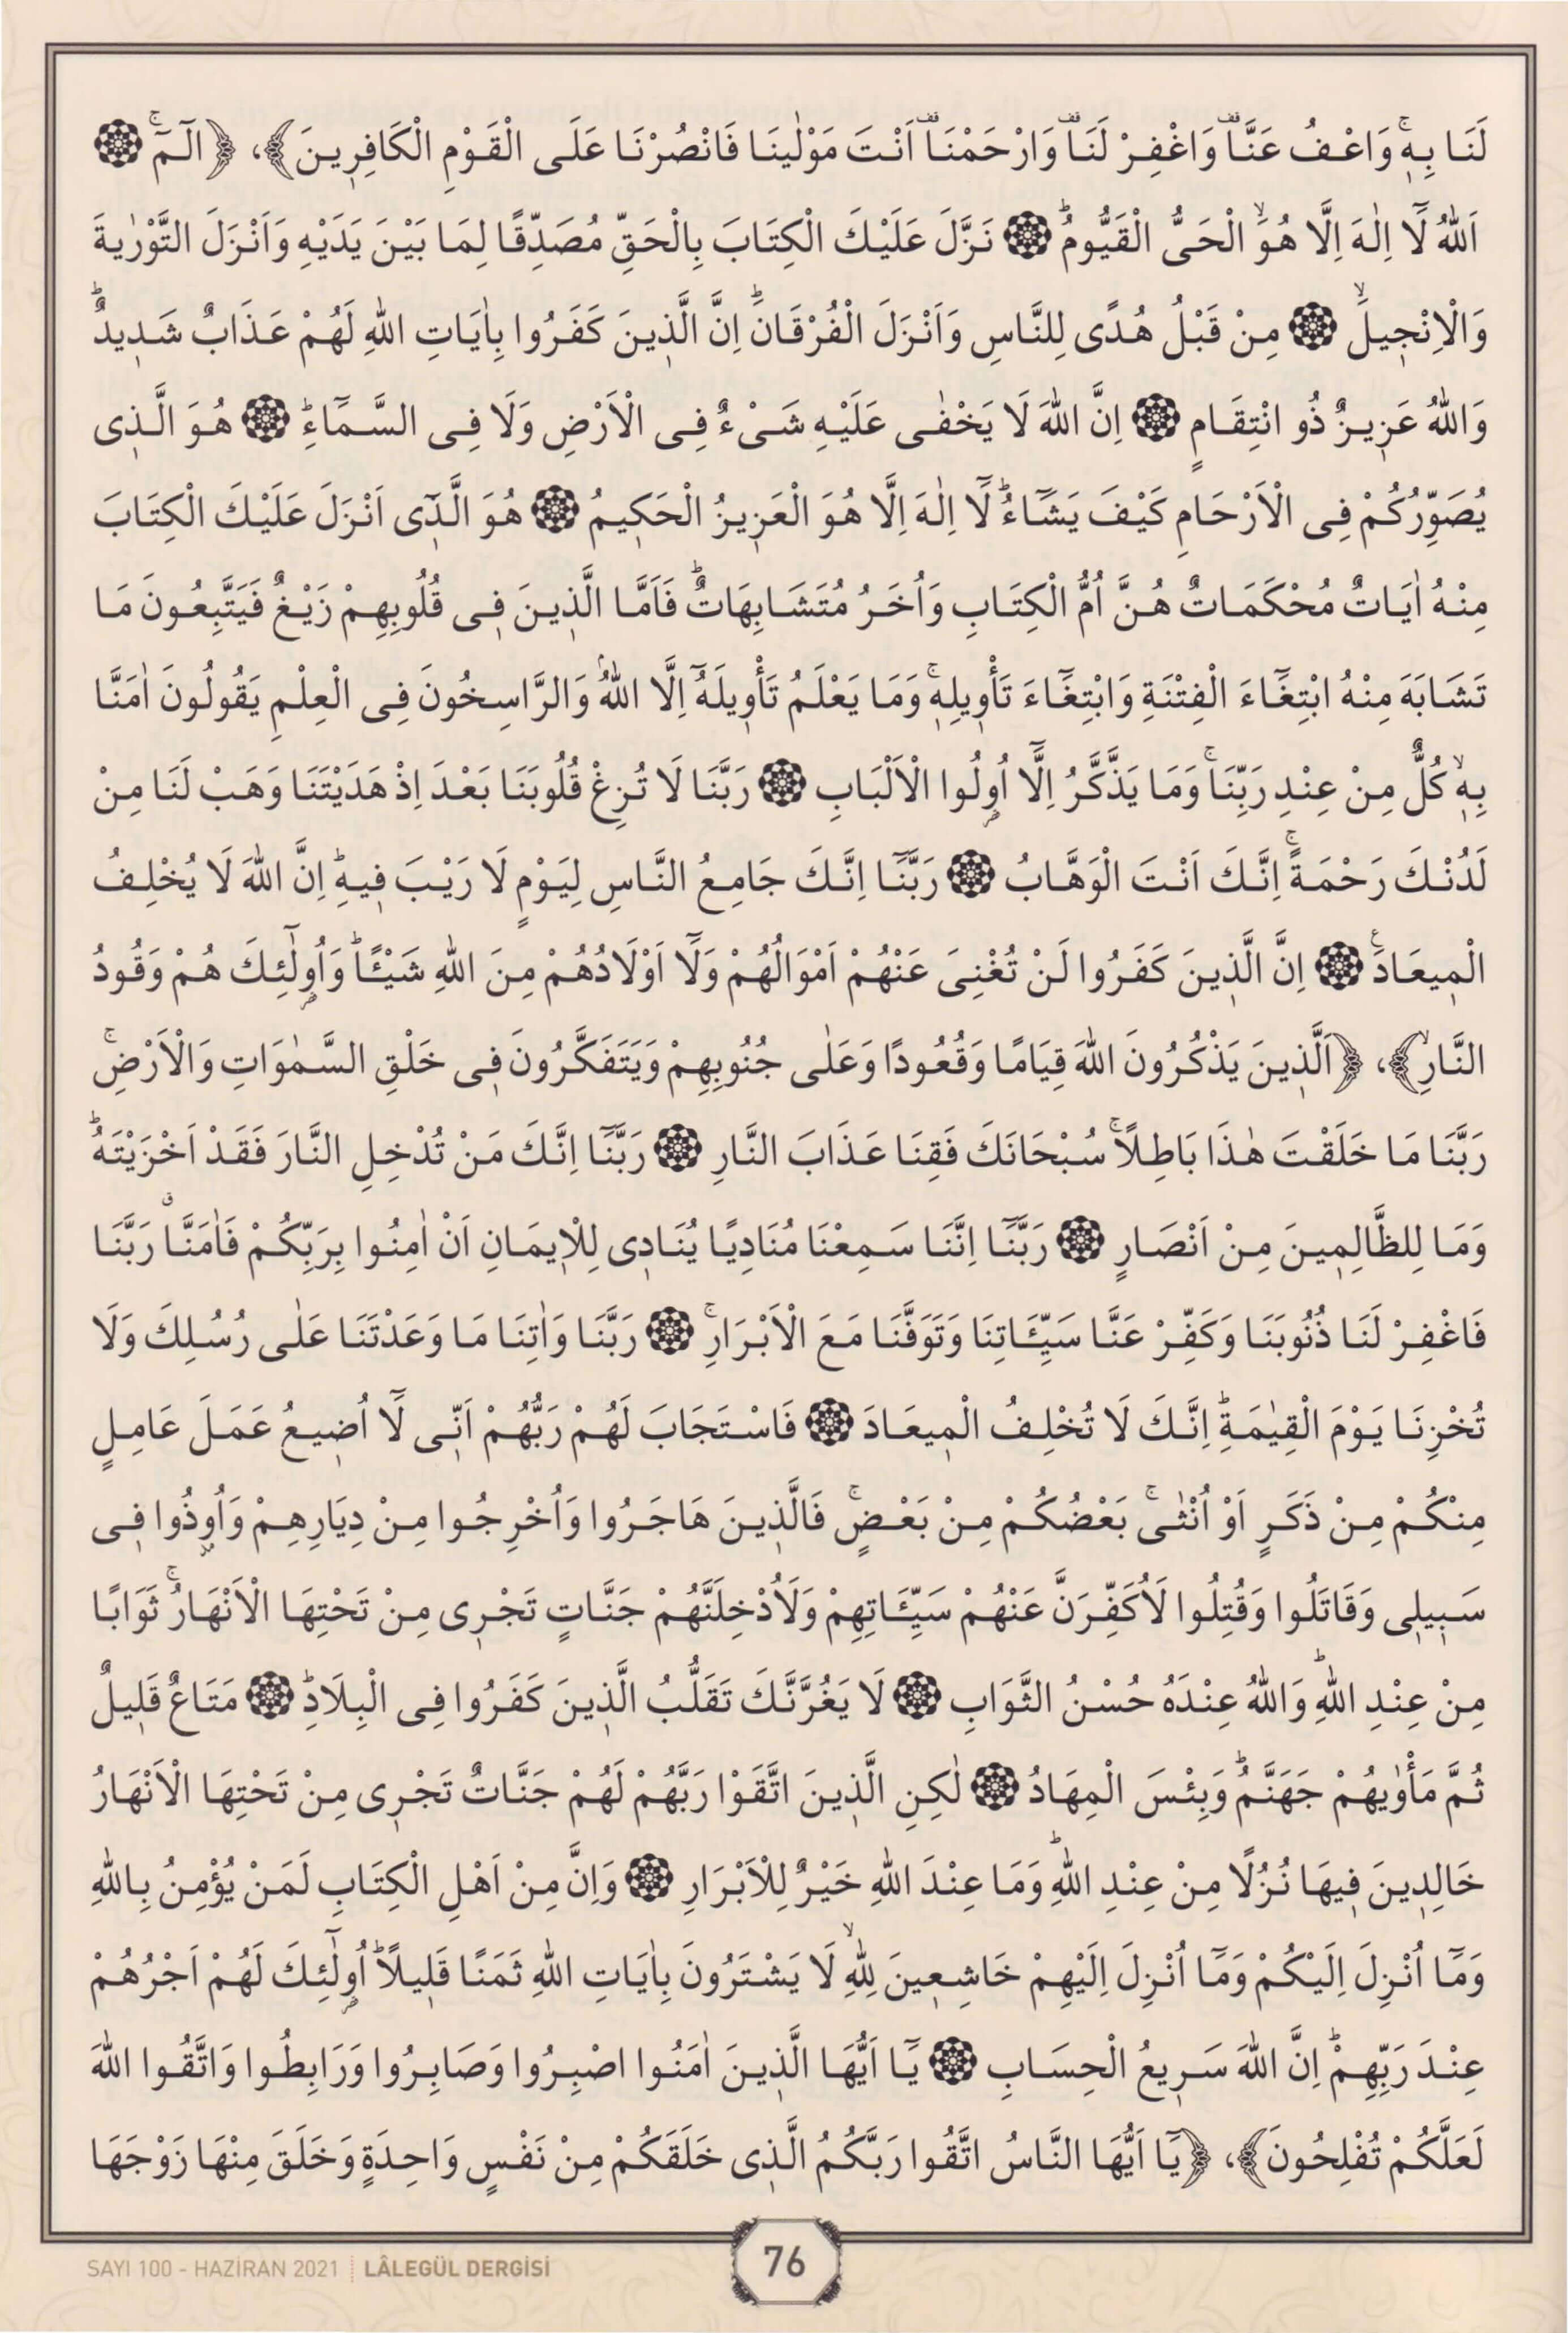 لَنَا بِهٖۚ وَاعْفُ عَنَّا۠ وَاغْفِرْ لَنَا۠ وَارْحَمْنَا۠ اَنْتَ مَوْلٰينَا فَانْصُرْنَا عَلَى الْقَوْمِ الْكَافِرٖينَ﴾، ﴿الٓمٓۚ ۞
اَللّٰهُ لَٓا اِلٰهَ اِلَّا هُوَۙ الْحَىُّ الْقَيُّومُؕ ۞ نَزَّلَ عَلَيْكَ الْكِتَابَ بِالْحَقِّ مُصَدِّقًا لِمَا بَيْنَ يَدَيْهِ وَاَنْزَلَ التَّوْرٰيةَ
وَالْاِنْجٖيلَۙ ۞ مِنْ قَبْلُ هُدًى لِلنَّاسِ وَاَنْزَلَ الْفُرْقَانَؕ اِنَّ الَّذٖينَ كَفَرُوا بِاٰيَاتِ اللّٰهِ لَهُمْ عَذَابٌ شَدٖيدٌؕ
وَاللّٰهُ عَزٖيزٌ ذُو انْتِقَامٍ ۞ اِنَّ اللّٰهَ لَا يَخْفٰى عَلَيْهِ شَىْءٌ فِى الْاَرْضِ وَلَا فِى السَّمَٓاءِؕ ۞ هُوَ الَّذٖى
يُصَوِّرُكُمْ فِى الْاَرْحَامِ كَيْفَ يَشَٓاءُؕ لَٓا اِلٰهَ اِلَّا هُوَ الْعَزٖيزُ الْحَكٖيمُ ۞ هُوَ الَّذٖٓى اَنْزَلَ عَلَيْكَ الْكِتَابَ
مِنْهُ اٰيَاتٌ مُحْكَمَاتٌ هُنَّ اُمُّ الْكِتَابِ وَاُخَرُ مُتَشَابِهَاتٌؕ فَاَمَّا الَّذٖينَ فٖى قُلُوبِهِمْ زَيْغٌ فَيَتَّبِعُونَ مَا
تَشَابَهَ مِنْهُ ابْتِغَٓاءَ الْفِتْنَةِ وَابْتِغَٓاءَ تَأْوٖيلِهٖۚ وَمَا يَعْلَمُ تَأْوٖيلَهُٓ اِلَّا اللّٰهُۘ وَالرَّاسِخُونَ فِى الْعِلْمِ يَقُولُونَ اٰمَنَّا
بِهٖۙ كُلٌّ مِنْ عِنْدِ رَبِّنَاۚ وَمَا يَذَّكَّرُ اِلَّٓا اُو۬لُوا الْاَلْبَابِ ۞ رَبَّنَا لَا تُزِغْ قُلُوبَنَا بَعْدَ اِذْ هَدَيْتَنَا وَهَبْ لَنَا مِنْ
لَدُنْكَ رَحْمَةًۚ اِنَّكَ اَنْتَ الْوَهَّابُ ۞ رَبَّنَٓا اِنَّكَ جَامِعُ النَّاسِ لِيَوْمٍ لَا رَيْبَ فٖيهِؕ اِنَّ اللّٰهَ لَا يُخْلِفُ
الْمٖيعَادَࣖ ۞ اِنَّ الَّذٖينَ كَفَرُوا لَنْ تُغْنِىَ عَنْهُمْ اَمْوَالُهُمْ وَلَٓا اَوْلَادُهُمْ مِنَ اللّٰهِ شَيْـًٔاؕ وَاُو۬لٰٓئِكَ هُمْ وَقُودُ
النَّارِۙ﴾، ﴿اَلَّذٖينَ يَذْكُرُونَ اللّٰهَ قِيَامًا وَقُعُودًا وَعَلٰى جُنُوبِهِمْ وَيَتَفَكَّرُونَ فٖى خَلْقِ السَّمٰوَاتِ وَالْاَرْضِۚ
رَبَّنَا مَا خَلَقْتَ هٰذَا بَاطِلًاۚ سُبْحَانَكَ فَقِنَا عَذَابَ النَّارِ ۞ رَبَّنَٓا اِنَّكَ مَنْ تُدْخِلِ النَّارَ فَقَدْ اَخْزَيْتَهُؕ
وَمَا لِلظَّالِمٖينَ مِنْ اَنْصَارٍ ۞ رَبَّنَٓا اِنَّنَا سَمِعْنَا مُنَادِيًا يُنَادٖى لِلْاٖيمَانِ اَنْ اٰمِنُوا بِرَبِّكُمْ فَاٰمَنَّاۗ رَبَّنَا
فَاغْفِرْ لَنَا ذُنُوبَنَا وَكَفِّرْ عَنَّا سَيِّـَٔاتِنَا وَتَوَفَّنَا مَعَ الْاَبْرَارِۚ ۞ رَبَّنَا وَاٰتِنَا مَا وَعَدْتَنَا عَلٰى رُسُلِكَ وَلَا
تُخْزِنَا يَوْمَ الْقِيٰمَةِؕ اِنَّكَ لَا تُخْلِفُ الْمٖيعَادَ ۞ فَاسْتَجَابَ لَهُمْ رَبُّهُمْ اَنّٖى لَٓا اُضٖيعُ عَمَلَ عَامِلٍ
مِنْكُمْ مِنْ ذَكَرٍ اَوْ اُنْثٰىۚ بَعْضُكُمْ مِنْ بَعْضٍۚ فَالَّذٖينَ هَاجَرُوا وَاُخْرِجُوا مِنْ دِيَارِهِمْ وَاُو۫ذُوا فٖى
سَبٖيلٖى وَقَاتَلُوا وَقُتِلُوا لَاُكَفِّرَنَّ عَنْهُمْ سَيِّـَٔاتِهِمْ وَلَاُدْخِلَنَّهُمْ جَنَّاتٍ تَجْرٖى مِنْ تَحْتِهَا الْاَنْهَارُۚ ثَوَابًا
مِنْ عِنْدِ اللّٰهِؕ وَاللّٰهُ عِنْدَهُ حُسْنُ الثَّوَابِ ۞ لَا يَغُرَّنَّكَ تَقَلُّبُ الَّذٖينَ كَفَرُوا فِى الْبِلَادِؕ ۞ مَتَاعٌ قَلٖيلٌ
ثُمَّ مَأْوٰيهُمْ جَهَنَّمُؕ وَبِئْسَ الْمِهَادُ ۞ لٰكِنِ الَّذٖينَ اتَّقَوْا رَبَّهُمْ لَهُمْ جَنَّاتٌ تَجْرٖى مِنْ تَحْتِهَا الْاَنْهَارُ
خَالِدٖينَ فٖيهَا نُزُلًا مِنْ عِنْدِ اللّٰهِؕ وَمَا عِنْدَ اللّٰهِ خَيْرٌ لِلْاَبْرَارِ ۞ وَاِنَّ مِنْ اَهْلِ الْكِتَابِ لَمَنْ يُؤْمِنُ بِاللّٰهِ
وَمَٓا اُنْزِلَ اِلَيْكُمْ وَمَٓا اُنْزِلَ اِلَيْهِمْ خَاشِعٖينَ لِلّٰهِۙ لَا يَشْتَرُونَ بِاٰيَاتِ اللّٰهِ ثَمَنًا قَلٖيلًاؕ اُو۬لٰٓئِكَ لَهُمْ اَجْرُهُمْ
عِنْدَ رَبِّهِمْؕ اِنَّ اللّٰهَ سَرٖيعُ الْحِسَابِ ۞ يَٓا اَيُّهَا الَّذٖينَ اٰمَنُوا اصْبِرُوا وَصَابِرُوا وَرَابِطُوا وَاتَّقُوا اللّٰهَ
لَعَلَّكُمْ تُفْلِحُونَ﴾، ﴿يَٓا اَيُّهَا النَّاسُ اتَّقُوا رَبَّكُمُ الَّذٖى خَلَقَكُمْ مِنْ نَفْسٍ وَاحِدَةٍ وَخَلَقَ مِنْهَا زَوْجَهَا
76
SAYI 100 - HAZİRAN 2021 LÂLEGÜL DERGİSİ